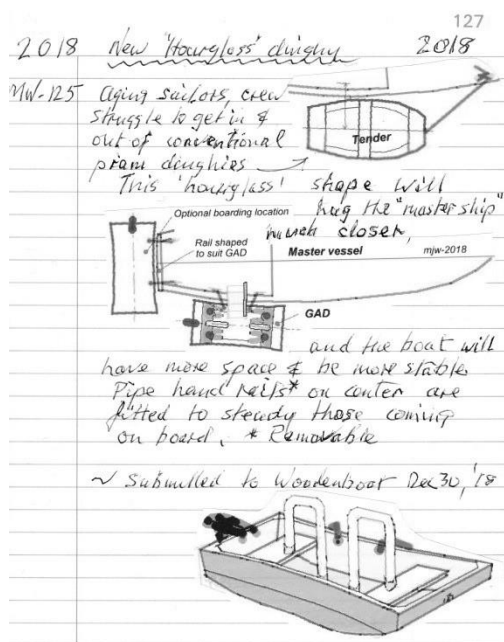 127
2018 New 'Hourglass' dinghy 2018
MW-125 aging sailors, crew
struggle to get in &
out of conventional
pram dinghies
Tender
This 'hourglass' shape will
hug the "master ship"
much closer,
Optional boarding location
Rail shaped
to suit GAD
Master vessel
mjw-2018
GAD
and the boat will
have more space & be more stable
Pipe hand rails* on center are
fitted to steady those coming
on board. * Removable
~ Submitted to Woodenboat Dec 30, '18